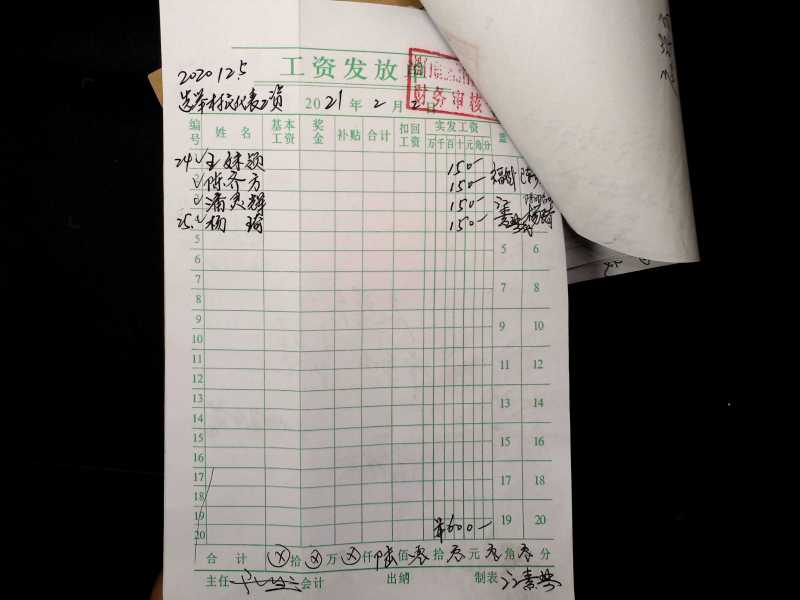 2020 12.5
工资发放单
选举村民代表工资 2021年2月2日
财务审核
编号 姓名 基本工资 奖金 补贴 合计 扣回工资 实发工资 万千百十元角分 盖
24 王妹颖 150-
陈齐方 150-
潘灵辉 150-
25 杨琦 150- 杨琦
5 5 6
6
7 7 8
8
9 9 10
10
11 11 12
12
13 13 14
14
15 15 16
16
17 17 18
18
19 19 20
20 ¥600-
合计 ⓧ拾ⓧ万ⓧ仟陆佰零拾零元零角零分
主任 会计 出纳 制表 江素典